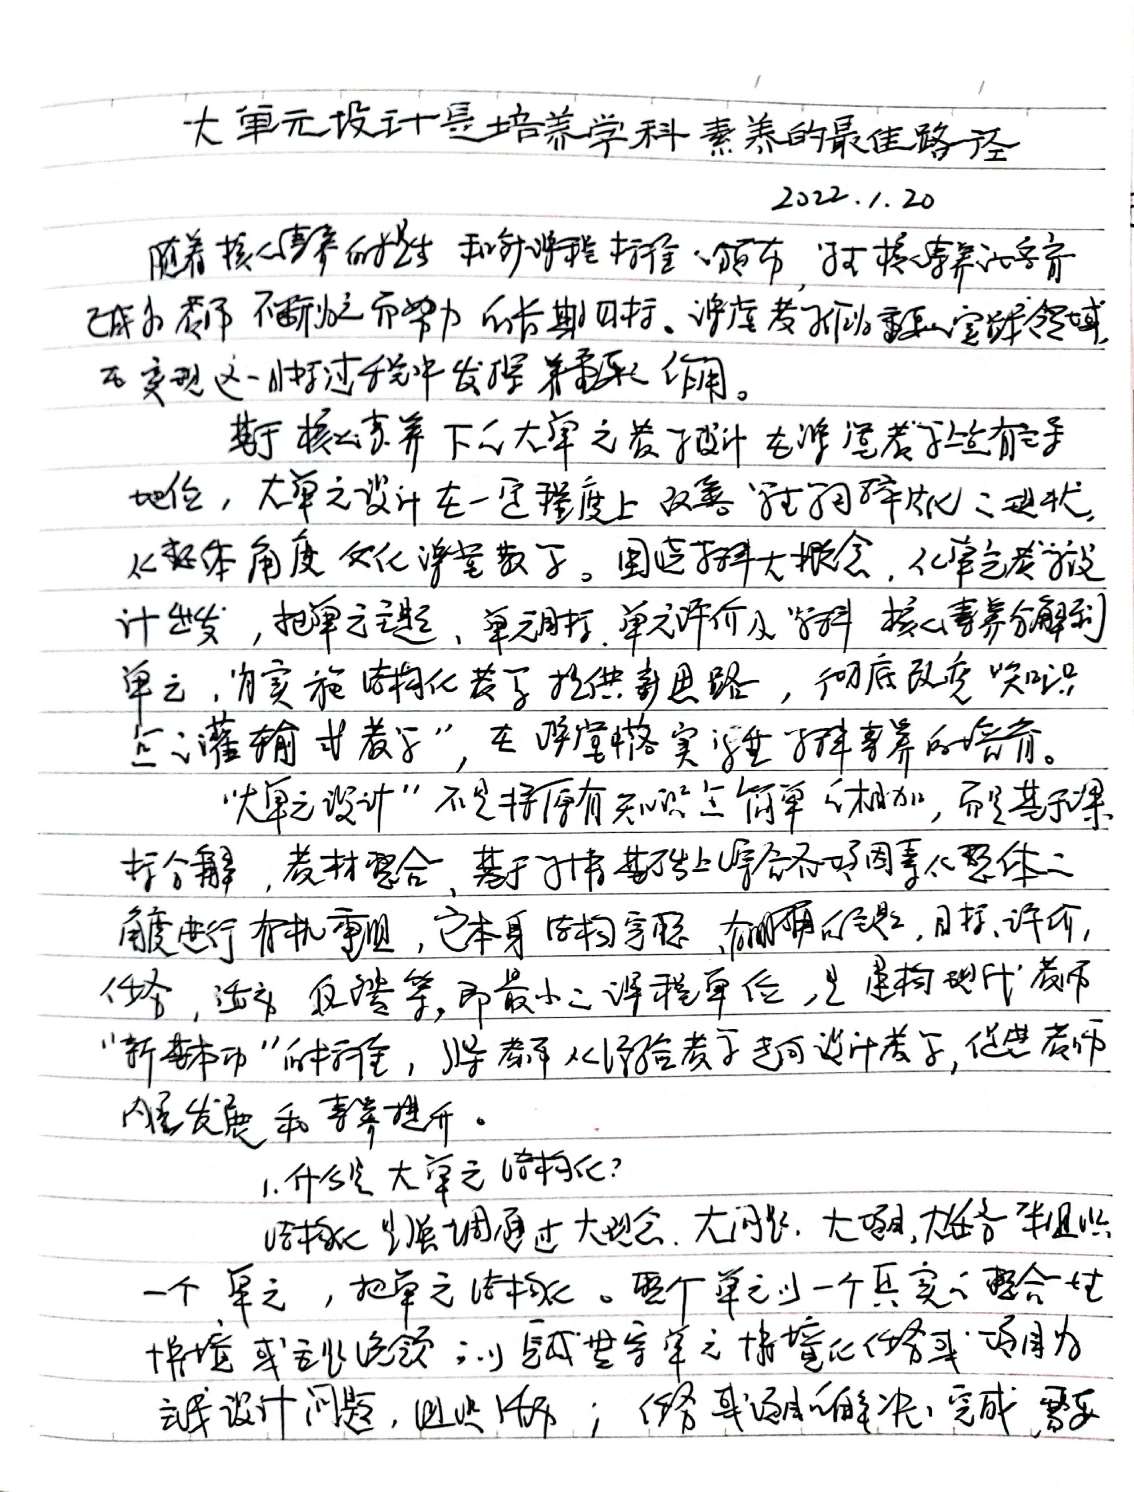 大单元设计是培养学科素养的最佳路径
2022.1.20
随着核心素养的提出和新课程标准的颁布，学生核心素养的培育
已成为教师不断为之而努力的长期目标。课堂教学作为重要的实践领域，
在实现这一目标过程中发挥着重要的作用。
基于核心素养下的大单元教学设计在课堂教学上占有主导
地位，大单元设计在一定程度上改善学生学习碎片化的现状，
从整体角度优化课堂教学。围绕学科大概念，从单元教学设
计出发，把单元主题、单元目标、单元评价及学科核心素养分解到
单元，为实施结构化教学提供新思路，彻底改变“知识
点的灌输式教学”，在课堂中落实学生学科素养的培育。
“大单元设计”不是将原有知识点简单的相加，而是基于课
标分解，教材整合，基于学情基础上综合各项因素从整体的
角度进行有机重组，它本身结构完整，有明确的主题、目标、评价，
任务，活动，反馈等，即最小的课程单位，是建构现代教师
“新基本功”的标准，引导教师从经验教学走向设计教学，促进教师
内涵发展和素养提升。
1.什么是大单元结构化？
结构化是强调通过大观念、大问题、大项目、大任务来组织
一个单元，把单元结构化。整个单元以一个真实的整合性
情境或主题统领；以完成贯穿单元情境化任务或项目为
主线设计问题，组织活动；任务或项目的解决、完成，需要